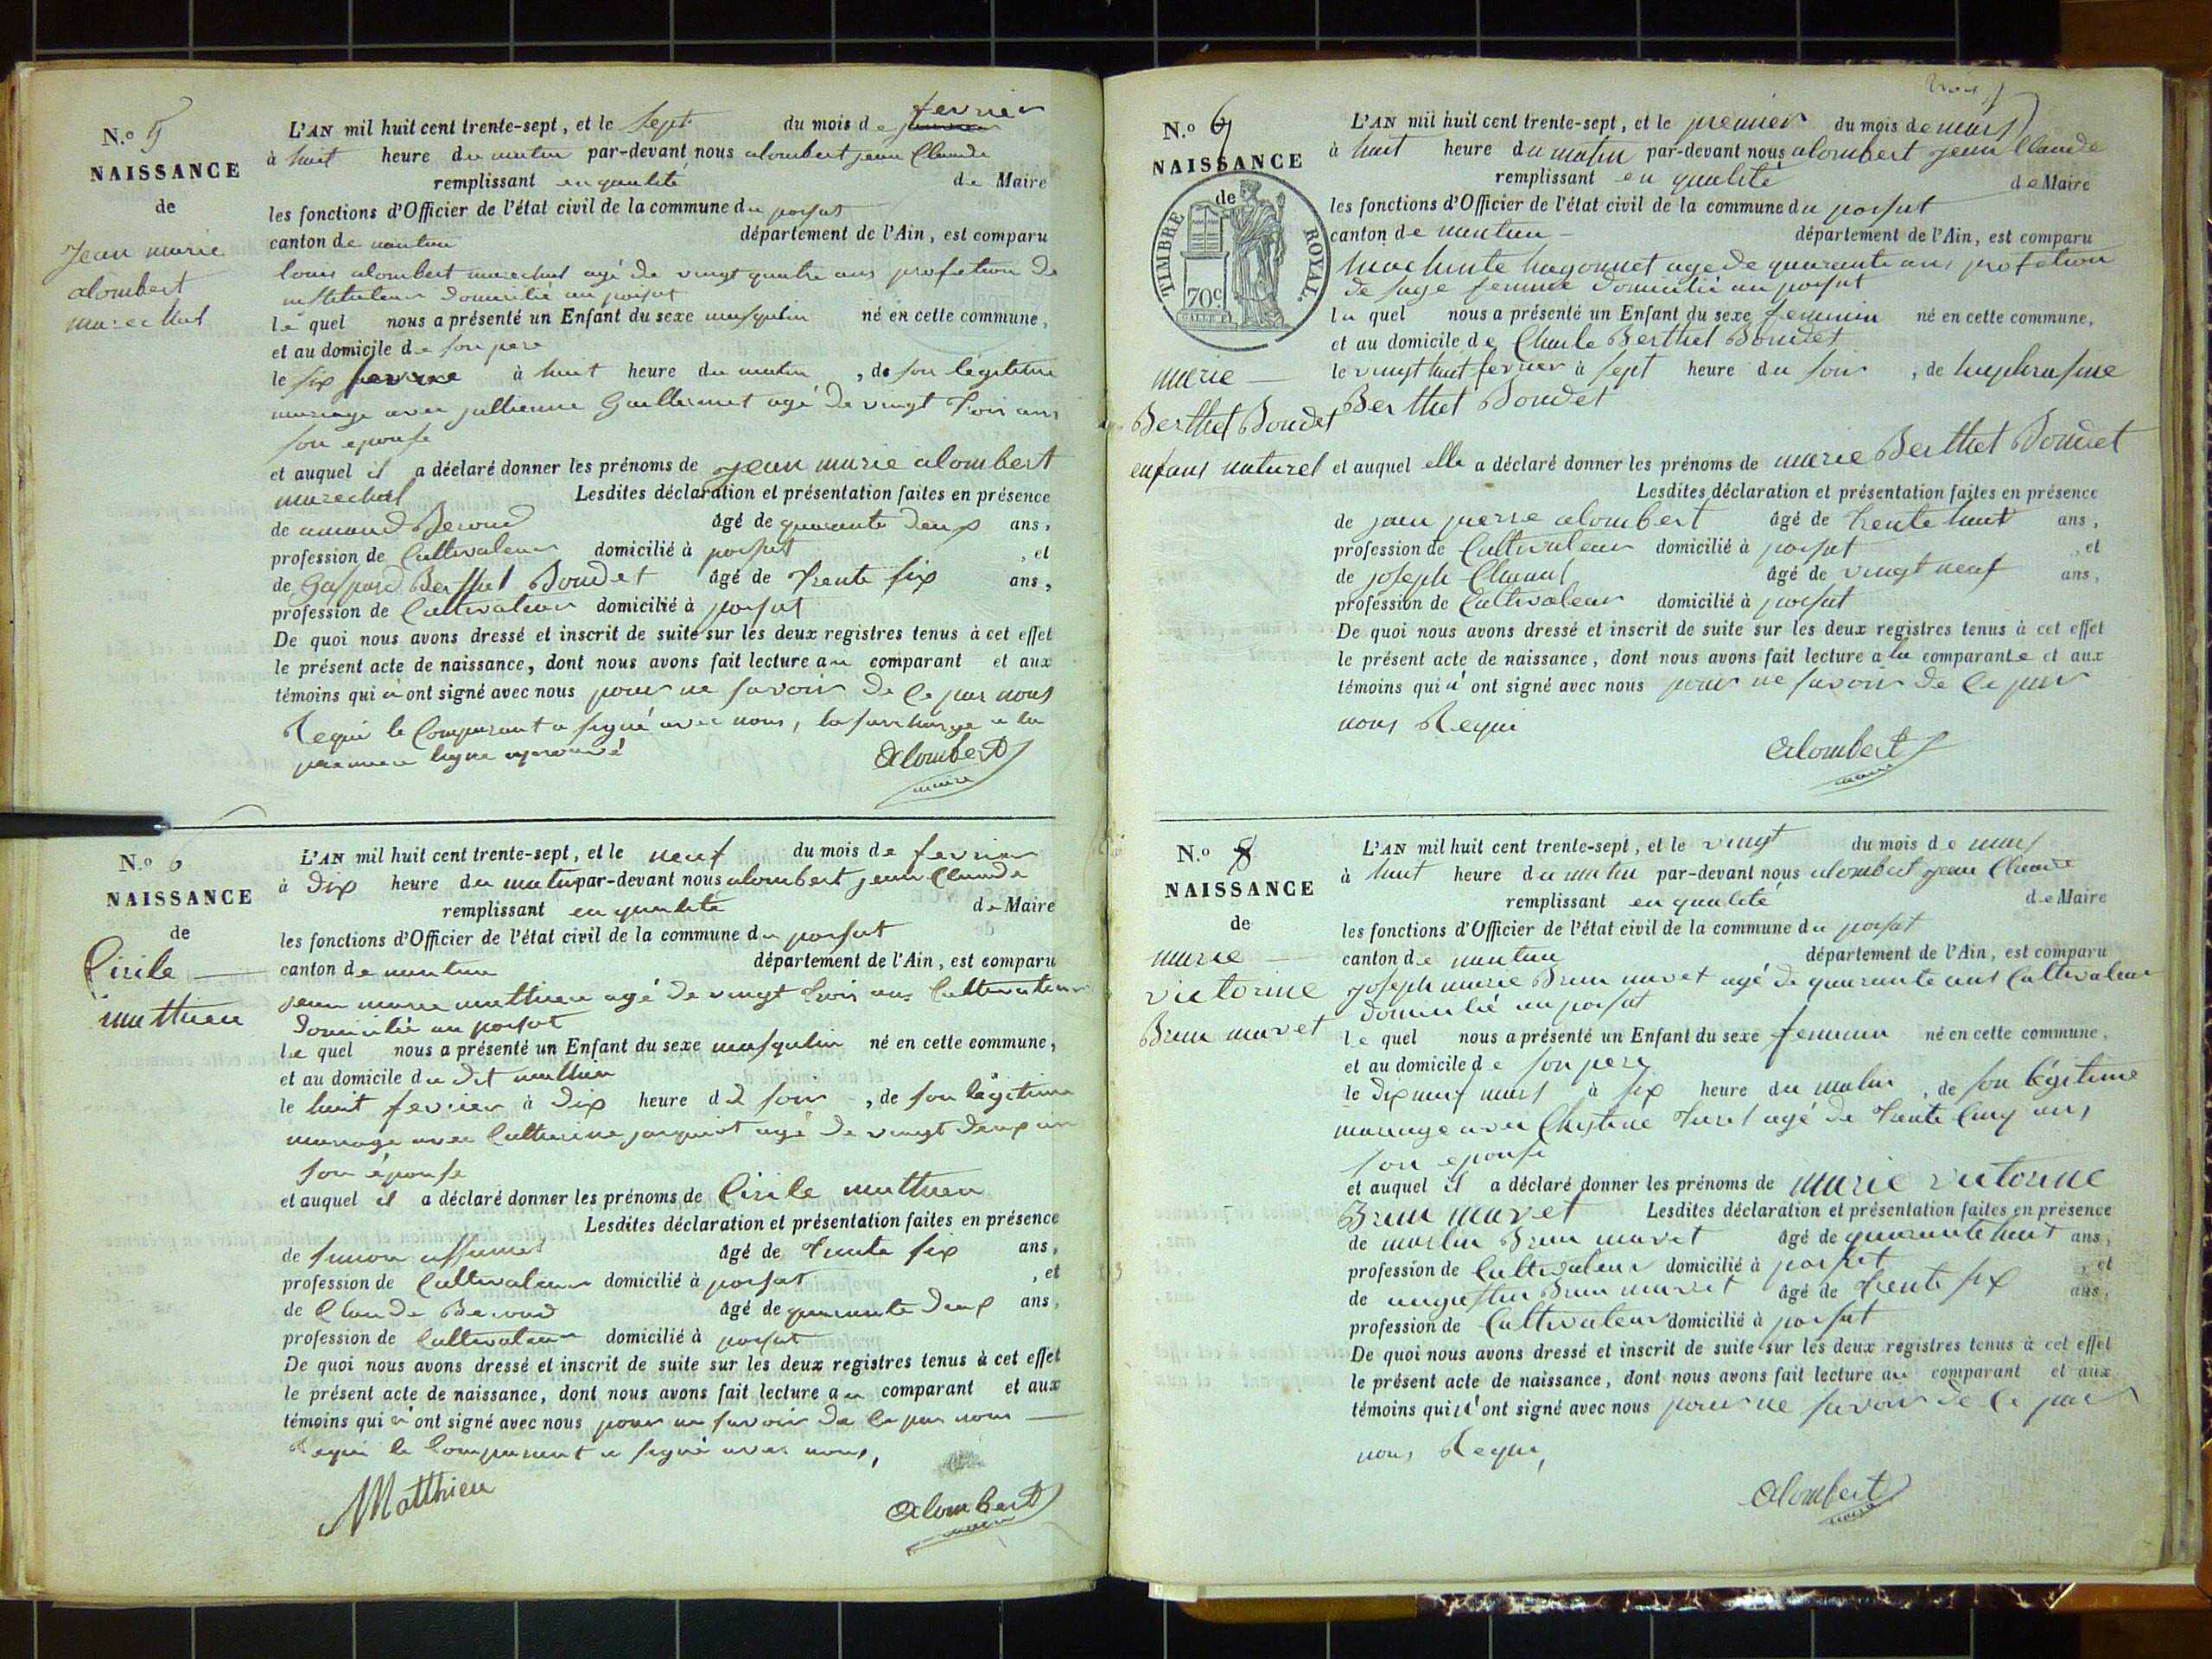 N.o 5
NAISSANCE
de
Jean marie
alombert
marechal
L'AN mil huit cent trente-sept, et le sept du mois de fevrier
à huit heure du matin par-devant nous alombert jean Claude
remplissant en qualité de Maire
les fonctions d'Officier de l'état civil de la commune du poisat
canton de nantua département de l'Ain, est comparu
louis alombert marechal agé de vingt quatre ans profetion de
instituteur domicilié au poisat
le quel nous a présenté un Enfant du sexe masqulin né en cette commune,
et au domicile de son pere
le six à huit heure du matin, de son légitime
mariage avec jullienne Guillermet agé de vingt trois ans
son epouse
et auquel il a déclaré donner les prénoms de jean marie alombert
marechal Lesdites déclaration et présentation faites en présence
de amand Beroud âgé de quarante deux ans,
profession de Cultivateur domicilié à poisat, et
de Gaspard Berthet Boudet âgé de trente six ans,
profession de Cultivateur domicilié à poisat
De quoi nous avons dressé et inscrit de suite sur les deux registres tenus à cet effet
le présent acte de naissance, dont nous avons fait lecture au comparant et aux
témoins qui n'ont signé avec nous pour ne savoir de ce par nous
Requi le Comparant a signé avec nous, la surcharge a la
premiere ligne aprouvé
Alombert
maire
N.o 6
NAISSANCE
de
Cirile
mathieu
L'AN mil huit cent trente-sept, et le neuf du mois de fevrier
à dix heure du matin par-devant nous alombert jean Claude
remplissant en qualité de Maire
les fonctions d'Officier de l'état civil de la commune du poisat
canton de nantua département de l'Ain, est comparu
jean marie mathieu agé de vingt trois ans Cultivateur
domicilié au poisat
le quel nous a présenté un Enfant du sexe masqulin né en cette commune,
et au domicile du dit mathieu
le huit fevrier à dix heure du soir, de son légitime
mariage avec Catherine jacquiot agé de vingt deux an
son épouse
et auquel il a déclaré donner les prénoms de Cirile mathieu
Lesdites déclaration et présentation faites en présence
de simon âgé de trente six ans,
profession de Cultivateur domicilié à poisat, et
de Claude Beroud âgé de quarante deux ans,
profession de Cultivateur domicilié à poisat
De quoi nous avons dressé et inscrit de suite sur les deux registres tenus à cet effet
le présent acte de naissance, dont nous avons fait lecture au comparant et aux
témoins qui n'ont signé avec nous pour ne savoir de ce par nous
Requi le Comparant a signé avec nous,
Matthieu
Alombert
maire
N.o 7
NAISSANCE
de
TIMBRE ROYAL.
70c
marie
Berthet Boudet
enfans naturel
L'AN mil huit cent trente-sept, et le premier du mois de mars
à huit heure du matin par-devant nous alombert jean Claude
remplissant en qualité de Maire
les fonctions d'Officier de l'état civil de la commune du poisat
canton de nantua département de l'Ain, est comparu
hagonnet age de quarante ans profetion
de sage femme domicilié au poisat
la quel nous a présenté un Enfant du sexe feminin né en cette commune,
et au domicile de Charle Berthet Boudet
le vingt huit fevrier à sept heure du soir, de huphrasine
Berthet Boudet
et auquel elle a déclaré donner les prénoms de marie Berthet Boudet
Lesdites déclaration et présentation faites en présence
de jean pierre alombert âgé de trente huit ans,
profession de Cultivateur domicilié à poisat, et
de joseph âgé de vingt neuf ans,
profession de Cultivateur domicilié à poisat
De quoi nous avons dressé et inscrit de suite sur les deux registres tenus à cet effet
le présent acte de naissance, dont nous avons fait lecture a la comparante et aux
témoins qui n'ont signé avec nous pour ne savoir de ce par
nous Requi
Alombert
maire
N.o 8
NAISSANCE
de
marie
victorine
Brun mavet
L'AN mil huit cent trente-sept, et le vingt du mois de mars
à huit heure du matin par-devant nous alombert jean Claude
remplissant en qualité de Maire
les fonctions d'Officier de l'état civil de la commune du poisat
canton de nantua département de l'Ain, est comparu
joseph marie Brun mavet agé de quarante ans Cultivateur
domicilié au poisat
le quel nous a présenté un Enfant du sexe feminin né en cette commune,
et au domicile de son pere
le dix neuf mars à six heure du matin, de son légitime
mariage avec Chystine agé de trente Cinq ans
son epouse
et auquel il a déclaré donner les prénoms de marie victorine
Brun mavet Lesdites déclaration et présentation faites en présence
de Brun mavet âgé de quarante huit ans,
profession de Cultivateur domicilié à poisat, et
de augustin Brun mavet âgé de trente six ans,
profession de Cultivateur domicilié à poisat
De quoi nous avons dressé et inscrit de suite sur les deux registres tenus à cet effet
le présent acte de naissance, dont nous avons fait lecture au comparant et aux
témoins qui n'ont signé avec nous pour ne savoir de ce par
nous Requi,
Alombert
maire